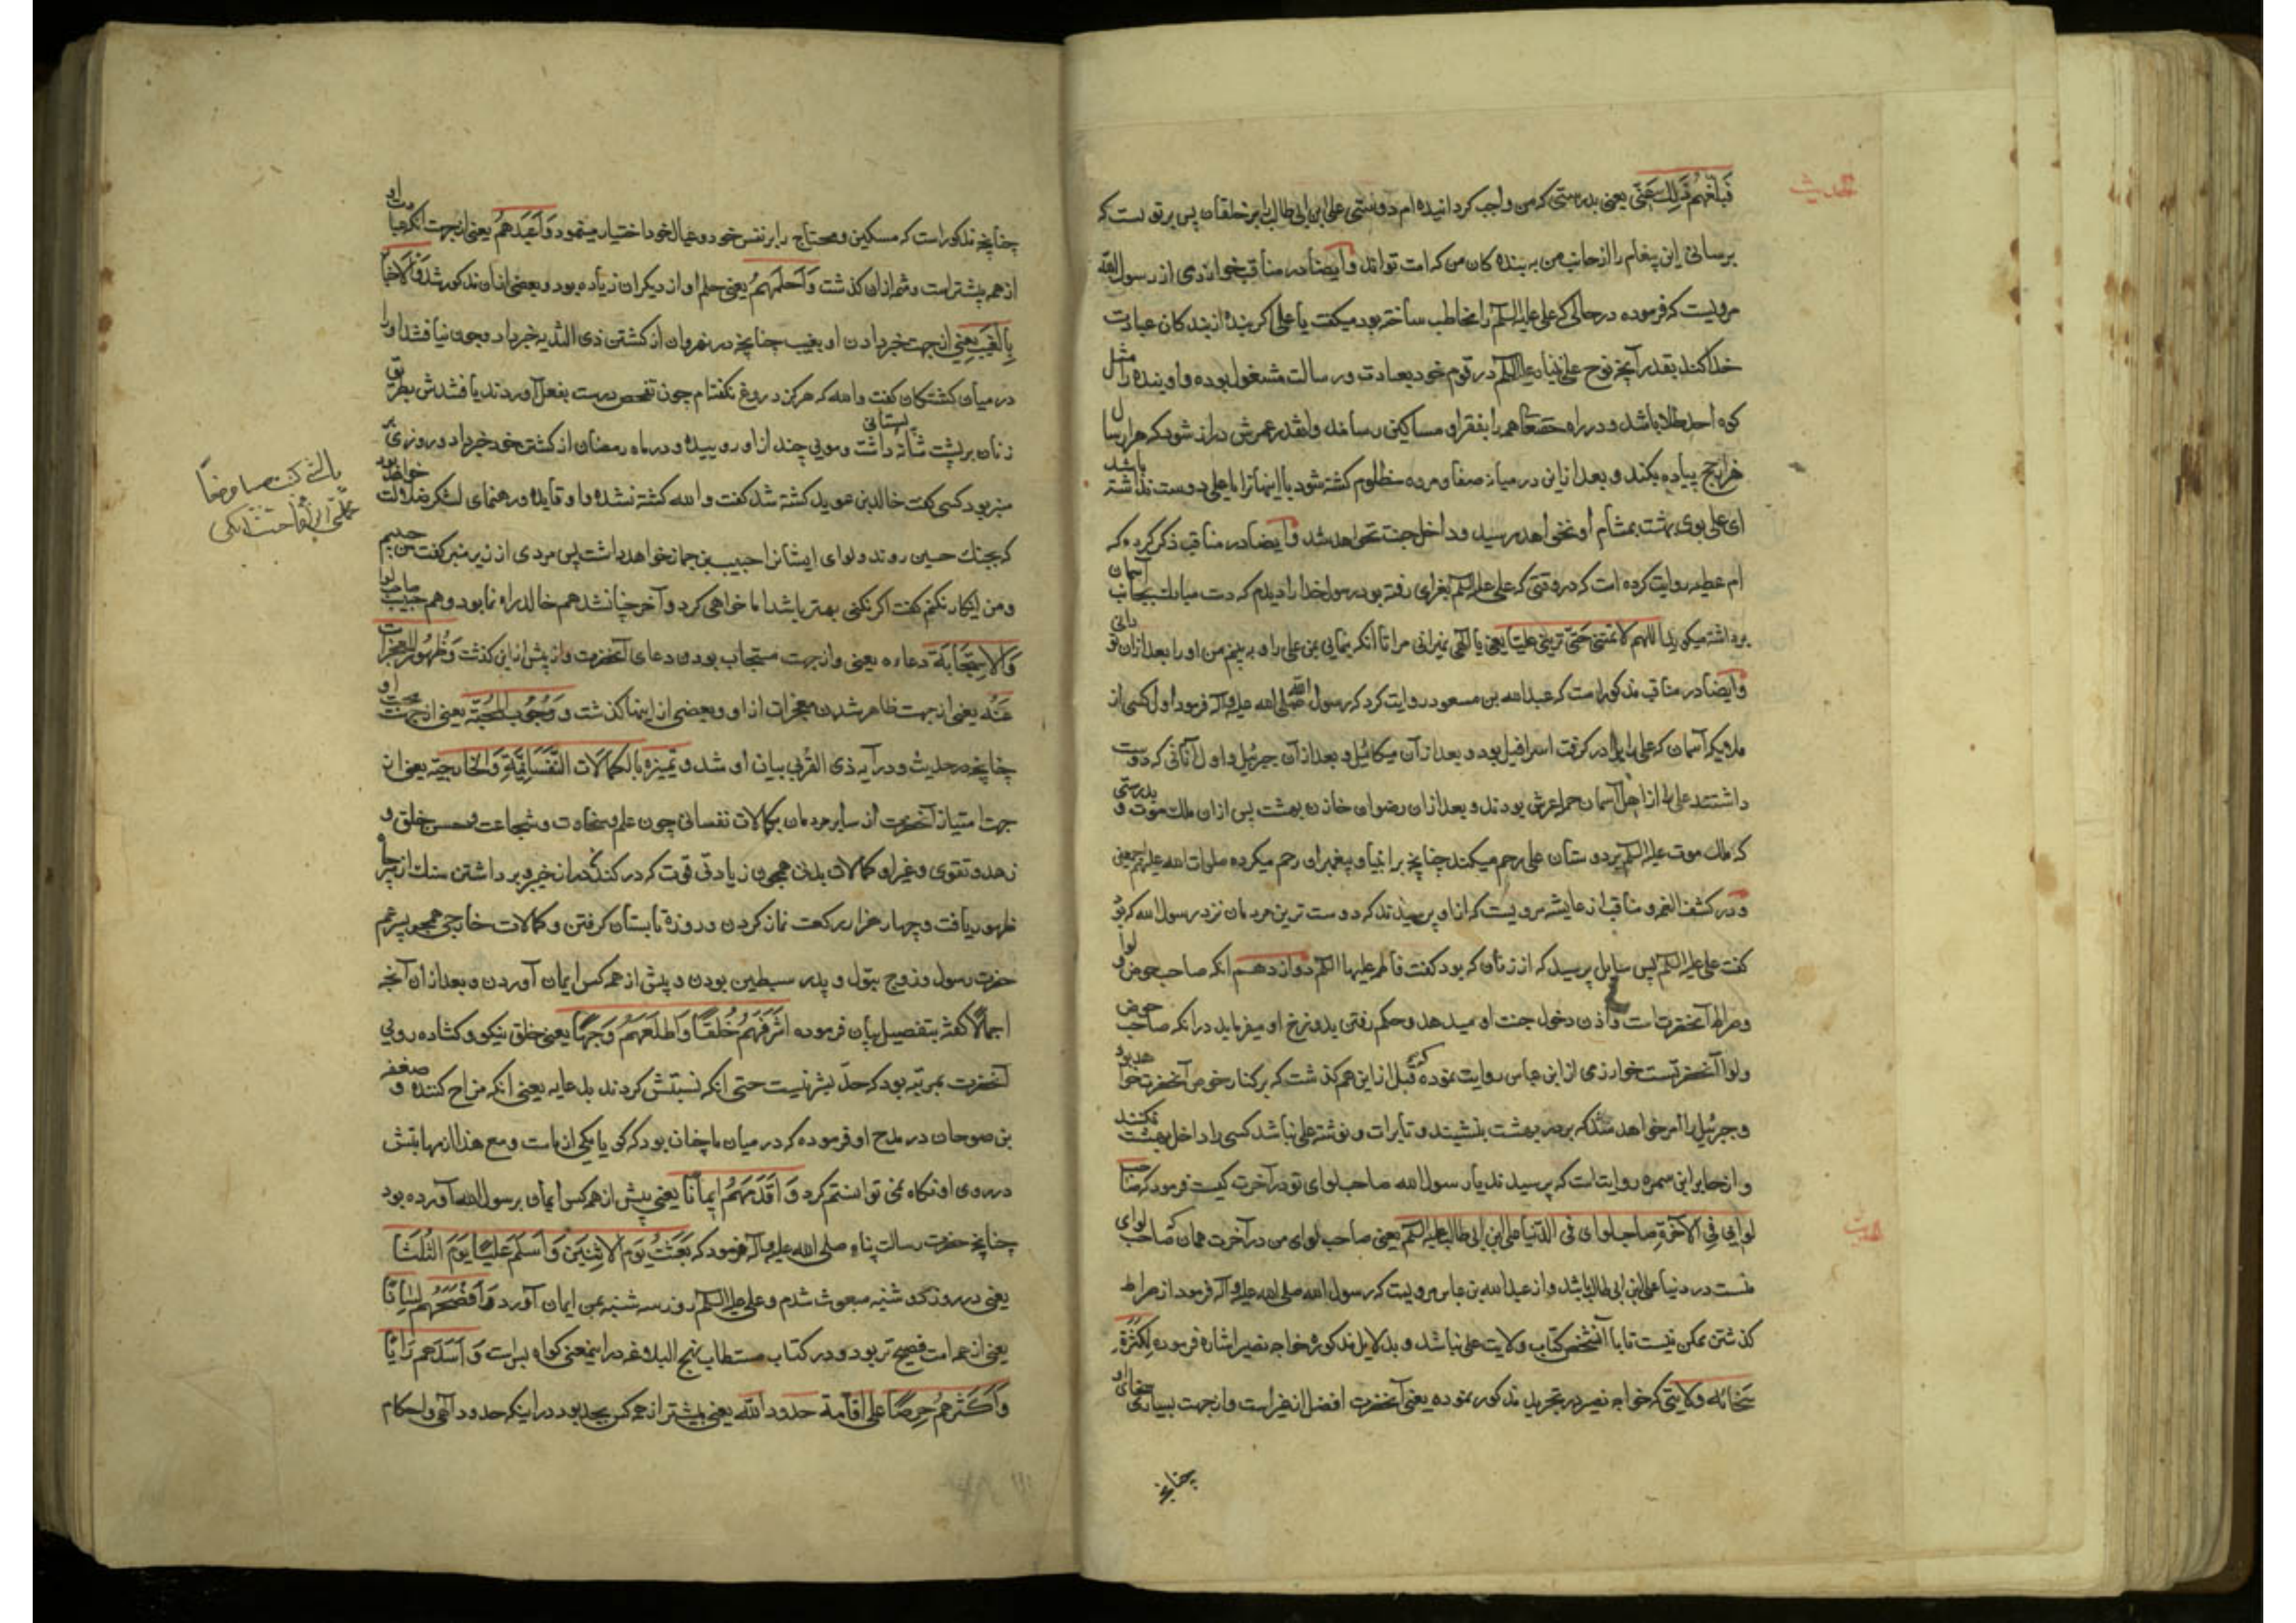 الحدیث
فبلغهم ذلک عنی یعنی بدرستی که من واجب کردانیده ام دوستی علی ابن ابی طالب را بر خلقان پس بر تو است که
برسانی این پیغام را از جانب من به بنده کان من که امت تواند و ایضا در مناقب خوارزمی از رسول الله
مرویست که فرموده در حالی که علی علیه السلام را مخاطب ساخته بود میکفت یا علی اکر بنده از بندکان عبادت
خدا کند بقدر آنچه نوح علی نبینا و علیه السلام در قوم خود بعبادت و رسالت مشغول بوده و او بنده را مثل
کوه احد طلا باشد و در راه حقتعا همه را بفقرا و مساکین رساند وانقدر عمرش دراز شود که هزار سال
حج پیاده بکند و بعد از این در میانه صفا و مروه مظلوم کشته شود با اینها ترا یا علی دوست نداشته باشد
ای علی بوی بهشت بمشام او نخواهد رسید و داخل جنت نخواهد شد و ایضا در مناقب ذکر کرده که
ام عطیه روایت کرده است که در وقتی که علی علیه السلام بغزای رفته بود رسول خدا را دیدم که دست مبارک بجانب آسمان
برداشته میکوید اللهم لا تمتنی حتی ترینی علیا یعنی یا الهی نمیرانی مرا تا آنکه بنمایی بمن علی را و به بینم من او را بعد از ان تو دانی
و ایضا در مناقب مذکور است که عبدالله بن مسعود روایت کرد که رسول الله صلی الله علیه و آله فرمود اول کسی از
ملایکه آسمان که علی را برادر کرفت اسرافیل بود و بعد از آن میکائیل و بعد از آن جبرئیل و اول آنانی که دوست
داشتند علی را از اهل آسمان حمله عرش بودند و بعد از ان رضوان خازن بهشت پس از ان ملک موت و بدرستی
که ملک موت علیه السلام بر دوستان علی رحم میکند چنانچه بر انبیا و پیغمبران رحم میکرده صلوات الله علیهم اجمعین
و در کشف الغمه و مناقب از عایشه مرویست که از او پرسیدند که دوست ترین مردمان نزد رسول الله که بود
کفت علی علیه السلام پس سایل پرسید که از زنان که بود کفت فاطمه علیها السلام دوازدهم انکه صاحب حوض و لوا
و صراط آنحضرت است و اذن دخول جنت او میدهد و حکم رفتن بدوزخ او میفرماید در انکه صاحب حوض
و لوا آنحضرتست خوارزمی از ابن عباس روایت نموده که قبل از این هم کذشت که بر کنار حوض آنحضرت خواهد بود
و جبرئیل را امر خواهد شد که بر در بهشت بنشیند و تا برات و نوشته علی نباشد کسی را داخل بهشت نکند
و از جابر ابن سمره روایت است که پرسیدند یا رسول الله صاحب لوای تو در آخرت کیست فرمود که صاحب
الحدیث
لوایی فی الآخرة صاحب لوای فی الدنیا علی ابن ابی طالب علیه السلام یعنی صاحب لوای من در آخرت همان که صاحب لوای
منست در دنیا علی ابن ابی طالب باشد و از عبدالله بن عباس مرویست که رسول الله صلی الله علیه و آله فرمود از صراط
کذشتن ممکن نیست تا با آنشخص کتاب ولایت علی نباشد و بدلایل مذکوره خواجه نصیر اشاره فرموده لکثرة
سخائه ولایتی که خواجه نصیر در تجرید مذکور نموده یعنی آنحضرت افضل از غیر است از جهت بسیاری سخای او
چنانچه
چنانچه مذکور است که مسکین و محتاج را بر نفس خود و عیال خود اختیار مینمود و اعبدهم یعنی از جهت انکه عبادت او
از همه بیشتر است و شمه ازان کذشت و احلمهم یعنی حلم او از دیکران زیاده بود و بعضی از ان مذکور شد و الاخبار
بالغیب یعنی از جهت خبر دادن او بغیب چنانچه در نهروان از کشتن ذی الثدیه خبر داد و چون نیافتند او را
در میان کشتکان کفت والله که هرکز دروغ نکفته ام چون تفحص درست بفعل آوردند یافتندش بطریق
زنان بر پشت شانه پستانی داشت و مویی چند از او روییده و در ماه رمضان از کشتن خود خبر داد و روزی بر
منبر بود کسی کفت خالد بن عویله کشته شد کفت والله کشته نشده و او قاید و رهنمای لشکر ضلالت خواهد بود
که بجنک حسین روند و لوای ایشانرا حبیب بن جماز خواهد داشت پس مردی از زیر منبر کفت من حبیبم
و من این کار نکنم کفت اکر نکنی بهتر باشد اما خواهی کرد و آخر چنان شد هم خالد راه نما بود و هم حبیب صاحب لوا
و الاستجابة دعاره یعنی و از جهت مستجاب بودن دعای آنحضرت و از پیش ازاین کذشت و ظهور المعجزات
عنه یعنی از جهت ظاهر شدن معجزات از او و بعضی از اینها کذشت و وجوب المحبة یعنی از جهت محبت او
چنانچه در حدیث و در آیه ذی القربی بیان او شد و تمیزه بالکمالات النفسانیة و الخارجیة یعنی از
جهت امتیاز آنحضرت از سایر مردمان بکمالات نفسانی چون علم و سخاوت و شجاعت و حسن خلق و
زهد و تقوی و غیر او کمالات بدنی همچون زیادتی قوت که در کندن در از خیبر و برداشتن سنک از چاه
ظهور یافت و چهار هزار رکعت نماز کردن و روزهٔ تابستان کرفتن و کمالات خارجی همچو پسر عم
حضرت رسول و زوج بتول و پدر سبطین بودن و پیش از همه کس ایمان آوردن و بعد از ان آنچه
اجمالا کفته بتفصیل بیان فرموده اشرفهم خلقا و اطلعهم وجها یعنی خلق نیکو و کشاده رویی
آنحضرت بمرتبه بود که حد بشر نیست حتی انکه نسبتش کردند بدعابه یعنی انکه مزاح کننده و صعصعه
بن صوحان در مدح او فرموده که در میان ما چنان بود که کویا یکی از ماست و مع هذا از مهابتش
در روی او نکاه نمی توانستم کرد و اقدمهم ایمانا یعنی پیش از همه کس ایمان برسول الله آورده بود
چنانچه حضرت رسالت پناه صلی الله علیه و آله فرمود که بعثت یوم الاثنین و اسلم علیا یوم الثلثا
یعنی در روز دو شنبه مبعوث شدم و علی علیه السلام روز سه شنبه بمن ایمان آورد و افصحهم لسانا
یعنی از همه امت فصیح تر بود و در کتاب مستطاب نهج البلاغه در اینمعنی کواه بس است و اسدهم رایا
و اکثرهم حرصا علی اقامة حدود الله یعنی بیشتر از همه کس بجد بود در اینکه حدود آلهی و احکام